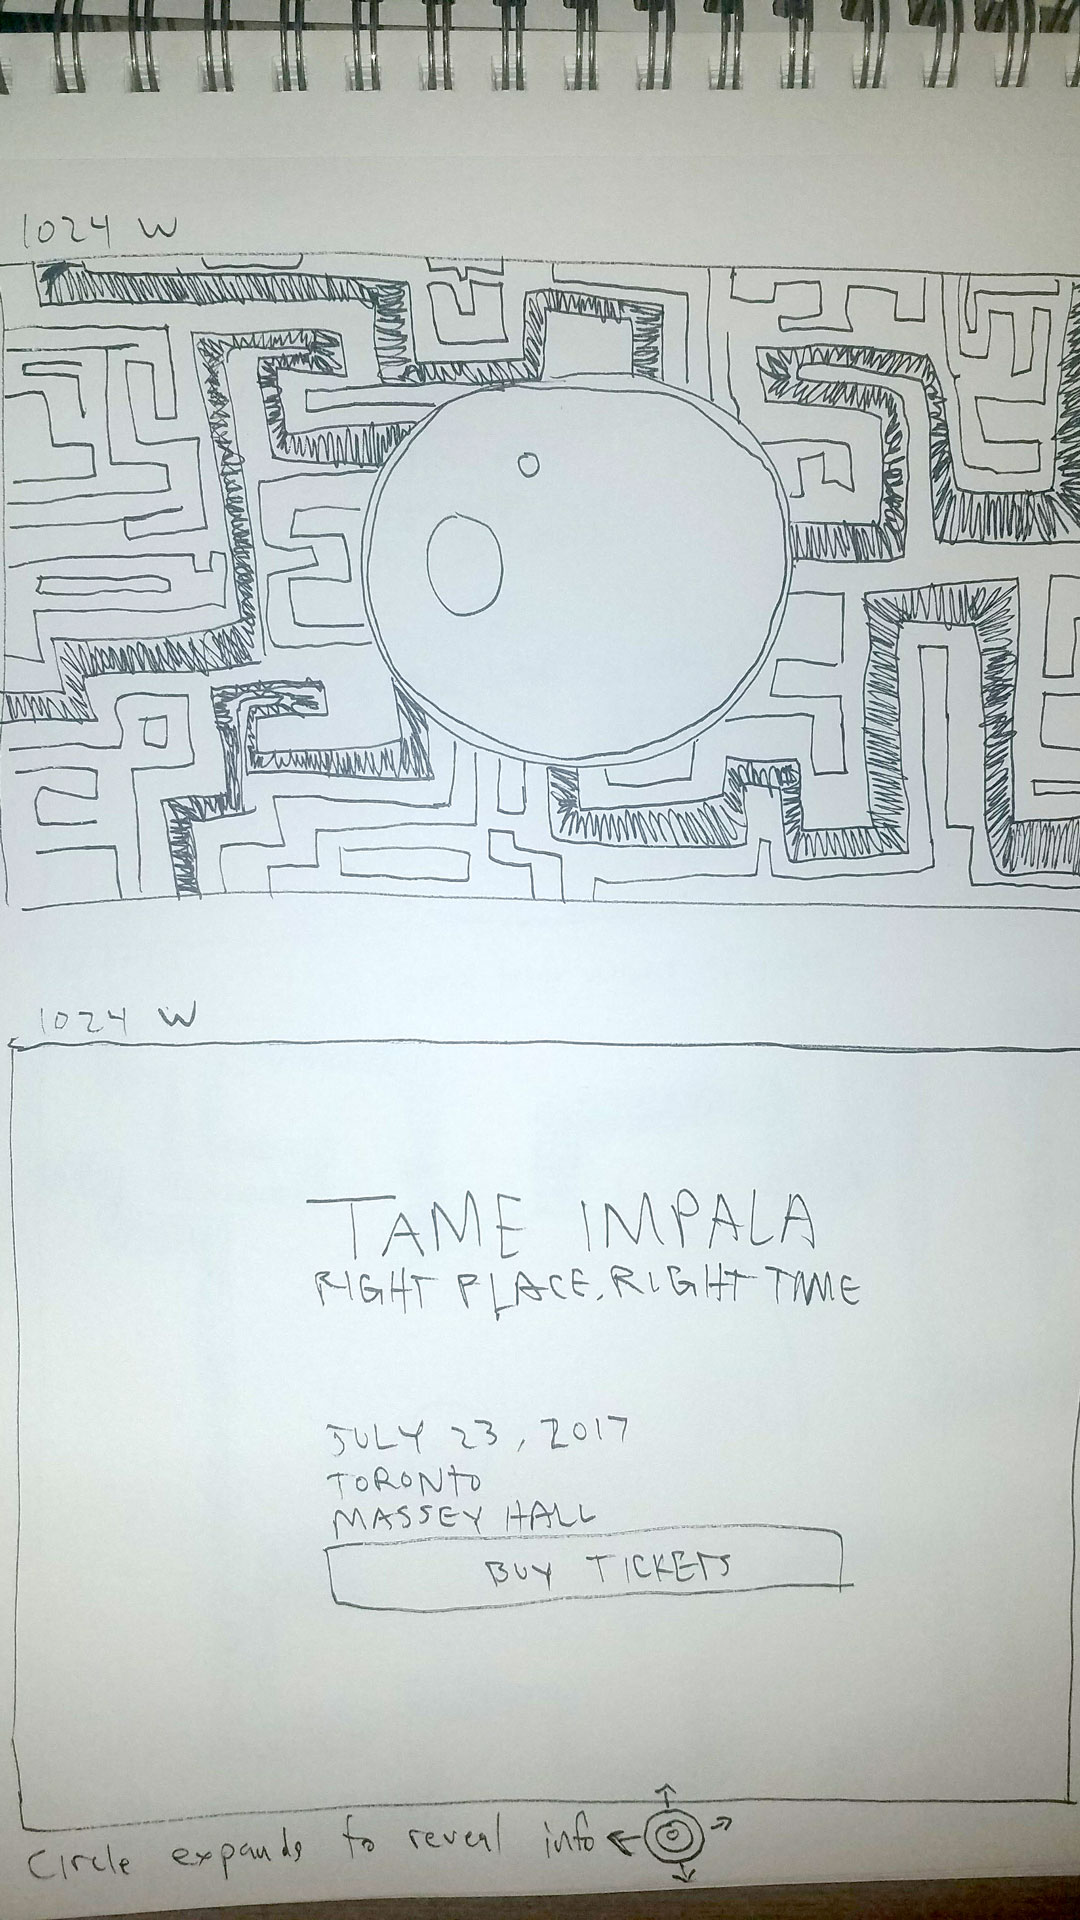 1024 W
1024 W
TAME IMPALA
RIGHT PLACE, RIGHT TIME
JULY 23, 2017
TORONTO
MASSEY HALL
BUY TICKETS
Circle expands to reveal info